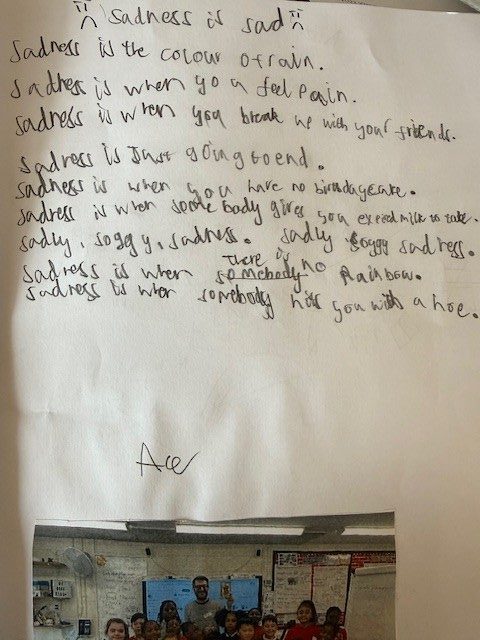 Sadness is sad
Sadness is the colour of rain.
Sadness is when you feel pain.
Sadness is when you break up with your friends.
Sadness is Just going to end.
Sadness is when you have no birthday cake.
Sadness is when some body gives you milk to take.
Sadly, soggy, sadness. Sadly soggy sadness.
Sadness is when there is no Rainbow.
Sadness is when somebody hits you with a hoe.
Ace